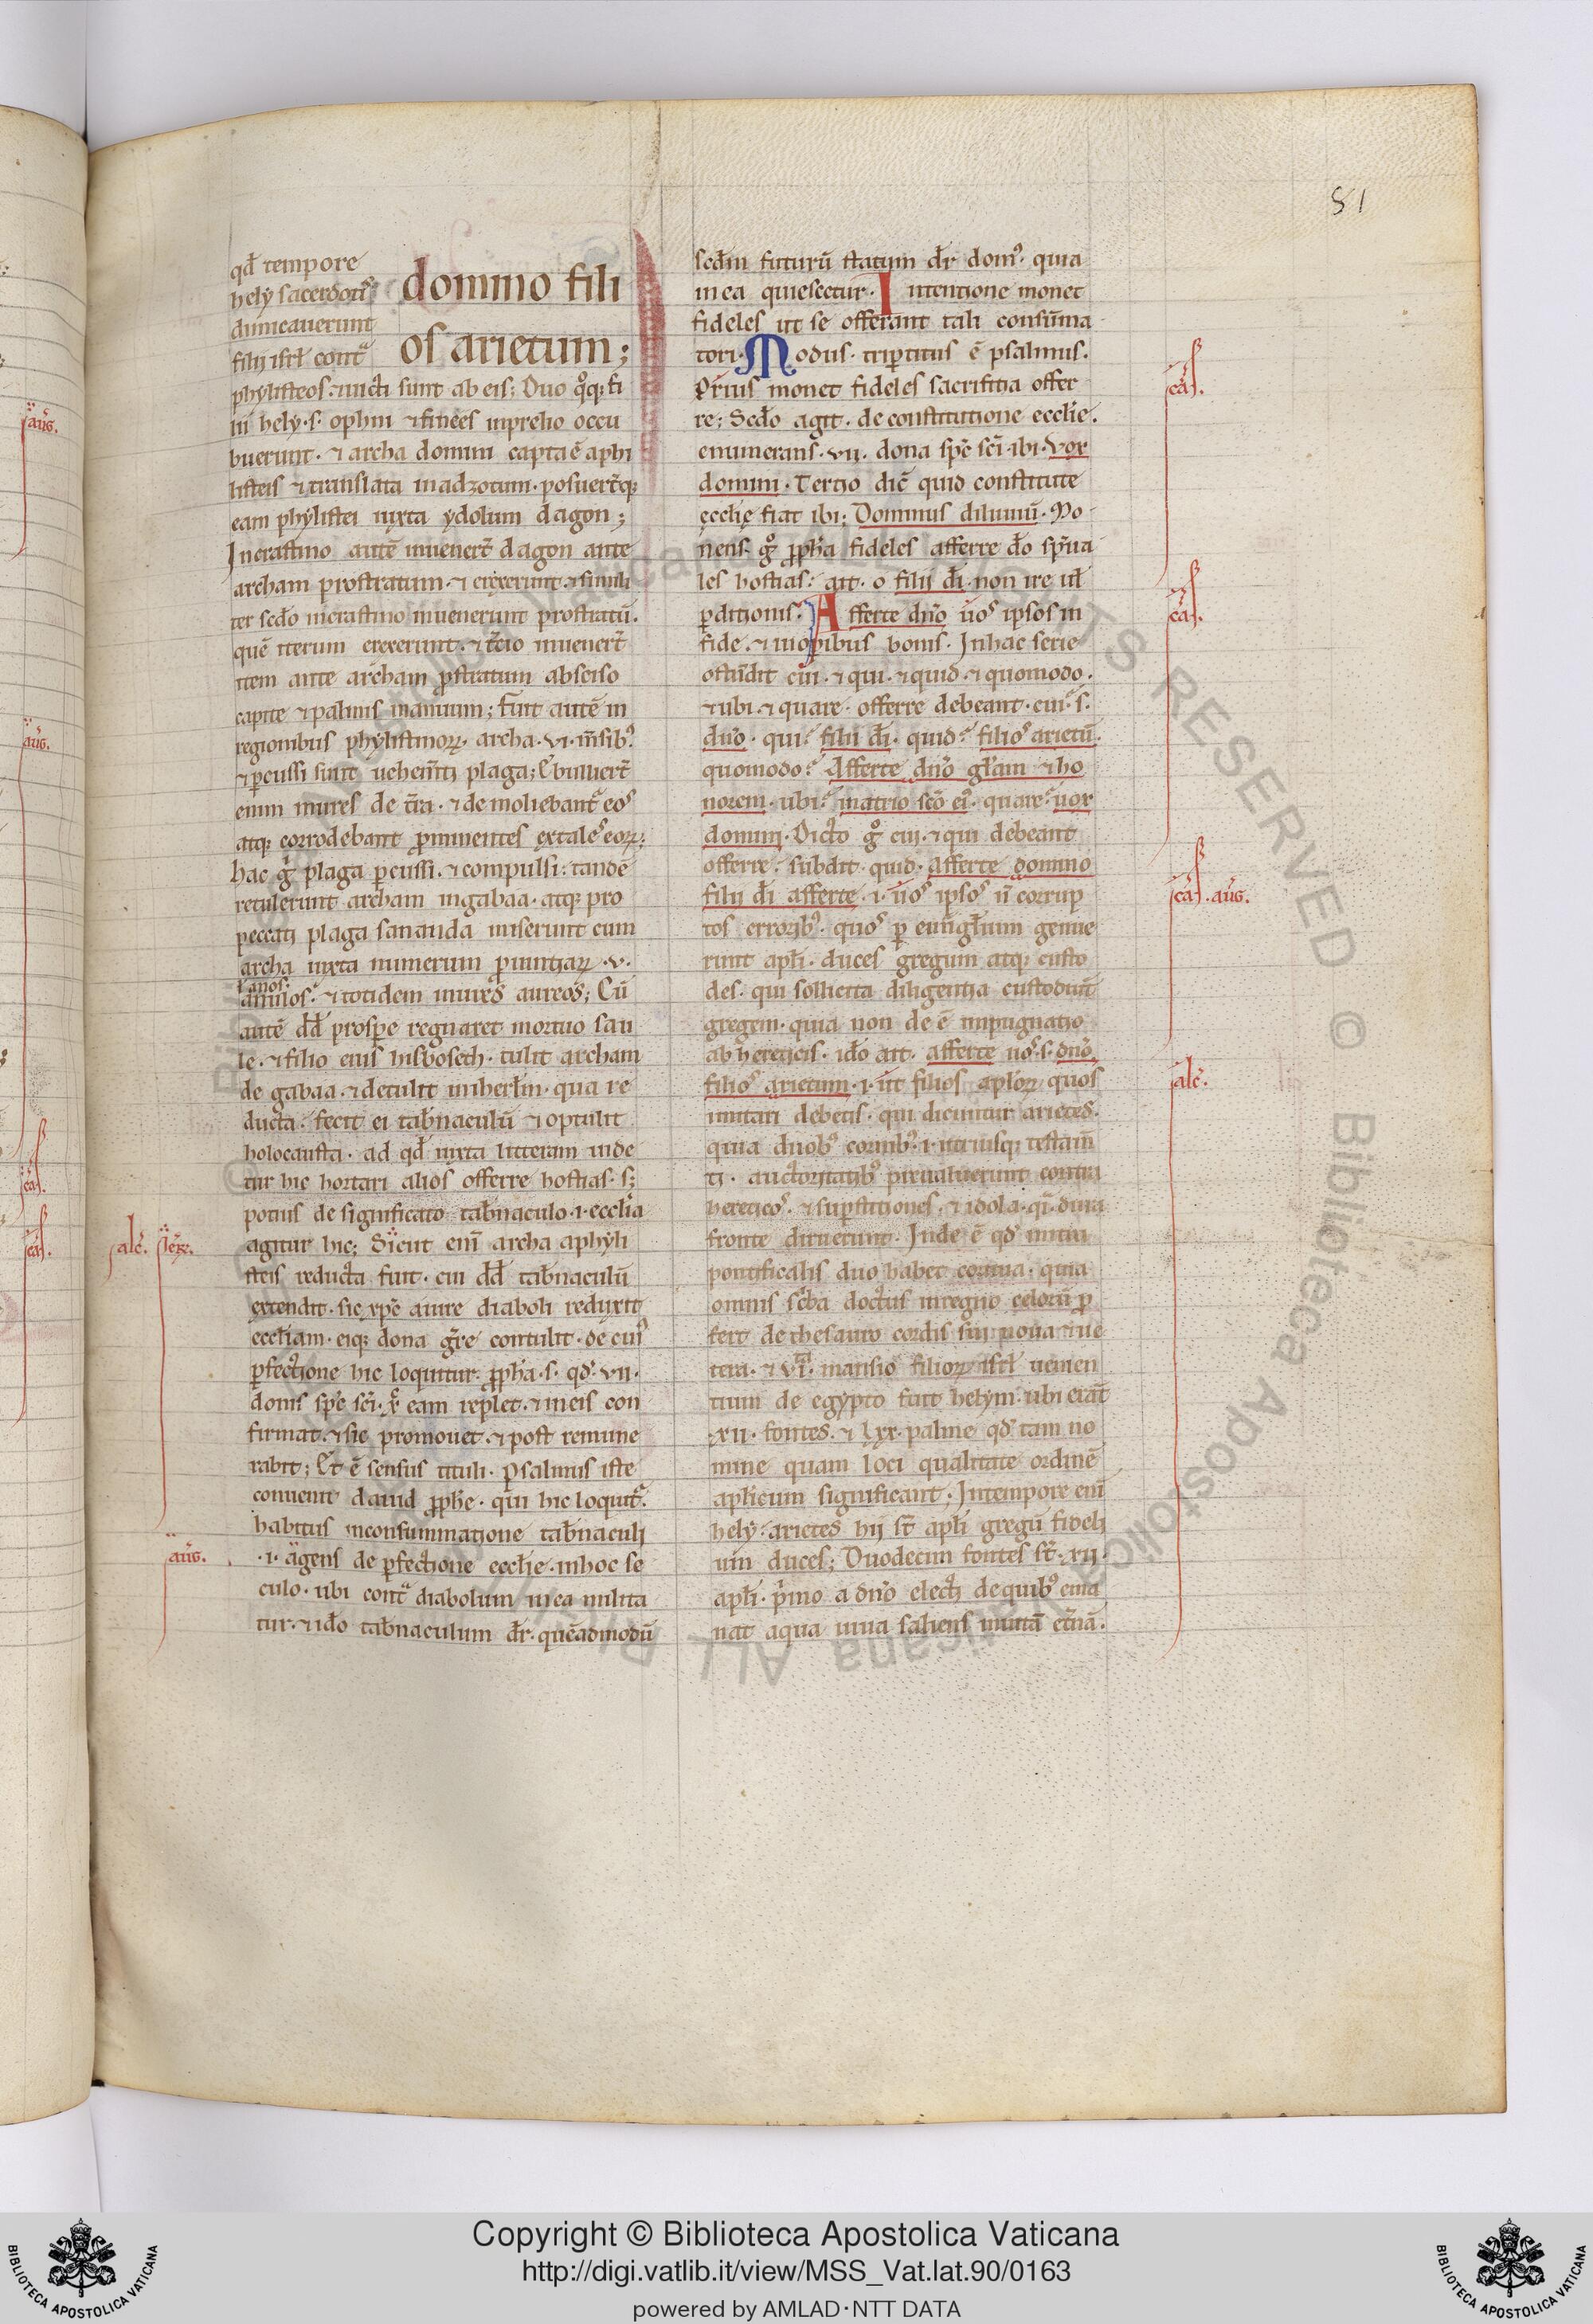 51
qđ tempore
hely sacerdotis
dimicauerunt
filij isrl contᵃ
domino fili
os arietum;
phylisteos. ⁊ uicti sunt ab eis; Duo qͦq; fi
lii hely. s. ophni ⁊ finees in prelio occu
buerunt. ⁊ archa domini capta ē a phi
listeis ⁊ translata in adzotum. posuerūtq;
eam phylistei iuxta ydolum dagon;
In crastino autē inuener̄t dagon ante
archam prostratum. ⁊ erexerunt. ⁊ simili
ter sedo in crastino inuenerunt prostratū.
quē iterum erexerunt. ⁊ t̄cio inuener̄t
item ante archam ꝓstratum absciso
capite ⁊ palmis manuum; fuit autē in
regionibus phylistinoꝝ. archa. vi. m̄sibꝰ.
⁊ ꝑcussi sunt uehem̄ti plaga; Ebulluer̄t
enim mures de t̄ra. ⁊ demoliebant᷑ eos
atq; corrodebant ꝓminentes extales eoꝝ.
hac gͦ plaga ꝑcussi. ⁊ compulsi. tandē
retulerunt archam in gabaa. atq; pro
peccati plaga sananda miserunt cum
archa iuxta numerum ꝓuintiaꝝ. v.
ł anos.
anulos. ⁊ totidem mures aureos; Cū
autē dđ prospe regnaret mortuo sau
le. ⁊ filio eius hisboseth. tulit archam
de gabaa. ⁊ detulit in iherłm. qua re
ducta. fecit ei tab̄naculū ⁊ optulit
holocausta. ad qđ iuxta litteram uide
tur hic hortari alios offerre hostias. s;
potius de significato tab̄naculo. i. ecclia
agitur hic; Sicut eni archa a phyli
steis reducta fuit. cui dđ tab̄naculū
extendit. sic xp̄c a iure diaboli reduxit
eccliam. eiq; dona gr̄e contulit. de cuiꝰ
ꝑfectione hic loquitur ꝓpħa. s. qđ. vii.
donis sp̄c sc̄i. xp̄c eam replet. ⁊ in eis con
firmat. ⁊ sic promouet. ⁊ post remune
rabit; Et ē sensus tituli. Psalmus iste
conuenit dauid ꝓpħe. qui hic loquit᷑.
habitus in consummatione tab̄naculi
.i. agens de ꝑfectione ecclie. in hoc se
culo. ubi contᵃ diabolum in ea milita
tur. ⁊ ido tab̄naculum dr̄. quēadmodū
secđm futurū statum dr̄ domꝰ. quia
in ea quiescetur. Intentione monet
fideles ut se offerant tali consūma
tori. Modus. triꝑtitus ē psalmus.
Prius monet fideles sacrifitia offer
re; Sedo agit. de constitutione ecclie.
enumerans. vii. dona sp̄c sc̄i. ibi. Vox
domini. Tertio dic̄ quid constitute
ecclię fiat ibi; Dominus diluuiū. Mo
nens. gͦ ꝓpħa fideles afferre do sp̄ua
les hostias. ait. o filii dī. non ire ut
ꝑditionis. Afferte dn̄o uos ipsos in
fide. ⁊ in opibus bonis. In hac serie
ostēdit cui. ⁊ qui. ⁊ quid ⁊ quomodo.
⁊ ubi. ⁊ quare. offerre debeant. cui. s.
dn̄o. qui. filii dī. quid. filios arietū.
quomodo. Afferte dn̄o głam ⁊ ho
norem. ubi. in atrio sc̄o eiꝰ. quare. uox
domini. Dicto gͦ cui. ⁊ qui debeant
offerre. subdit. quid. Afferte domino
filii dī afferte. i. uos ipsos n̄ corrup
tos erroribꝰ. quos ꝑ euāgłium genue
runt apłi. duces gregum atq; custo
des. qui sollicita diligentia custodiūt
gregem. quia non de ē impugnatio
ab hereticis. ido ait. afferte uos. s. dn̄o
filios arietum. i. ut filios apłoꝝ quos
imitari debetis. qui dicuntur arietes.
quia duobꝰ cornibꝰ. i. utriusq; testam̄
ti. auctoritatibꝰ preualuerunt contra
hereticos. ⁊ suꝑstitiones. ⁊ idola. qi dura
fronte diruerunt. Inde ē qđ mitra
pontificalis duo habet cornua. quia
omnis sc̄ba doctus in regno celorū ꝓ
fert de thesauro cordis sui noua ⁊ ue
tera. ⁊ vi. mansio filioꝝ isrł uenien
tium de egypto fuit helym. ubi erāt
.xii. fontes. ⁊ lxx. palme qđ tam no
mine quam loci qualitate ordinē
aplicum significant. In tempore eni
hely. arietes hij st̄ apłi gregū fideli
um duces; Duodecim fontes st̄. xii.
apłi. pͥmo a dn̄o electi de quibꝰ ema
nat aqua uiua saliens in uitā et̄nā.
auḡ.
auḡ.
cas̄.
cas̄.
alc̄. Ier̄.
auḡ.
cas̄.
cas̄.
cas̄. auḡ.
alc̄.
Copyright © Biblioteca Apostolica Vaticana
http://digi.vatlib.it/view/MSS_Vat.lat.90/0163
powered by AMLAD·NTT DATA
BIBLIOTECA APOSTOLICA VATICANA
BIBLIOTECA APOSTOLICA VATICANA